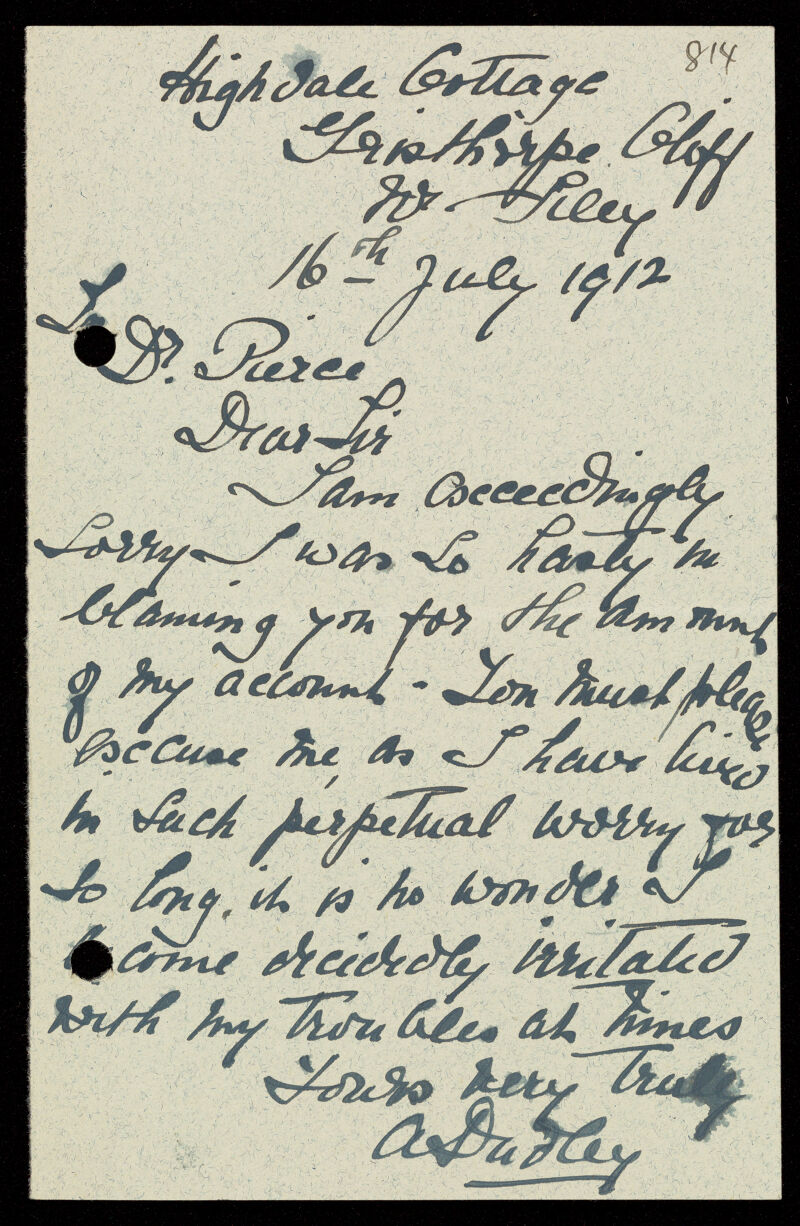 814
Highdale Cottage
Gristhorpe Cliff
Nr. Filey
16th July 1912
To
Dr. Pierce
Dear Sir
I am exceedingly
sorry I was so hasty in
blaming you for the amount
of my account - You must please
excuse me, as I have lived
in such perpetual worry for
so long, it is no wonder I
become decidedly irritated
with my troubles at times
Yours very truly
A Dudley